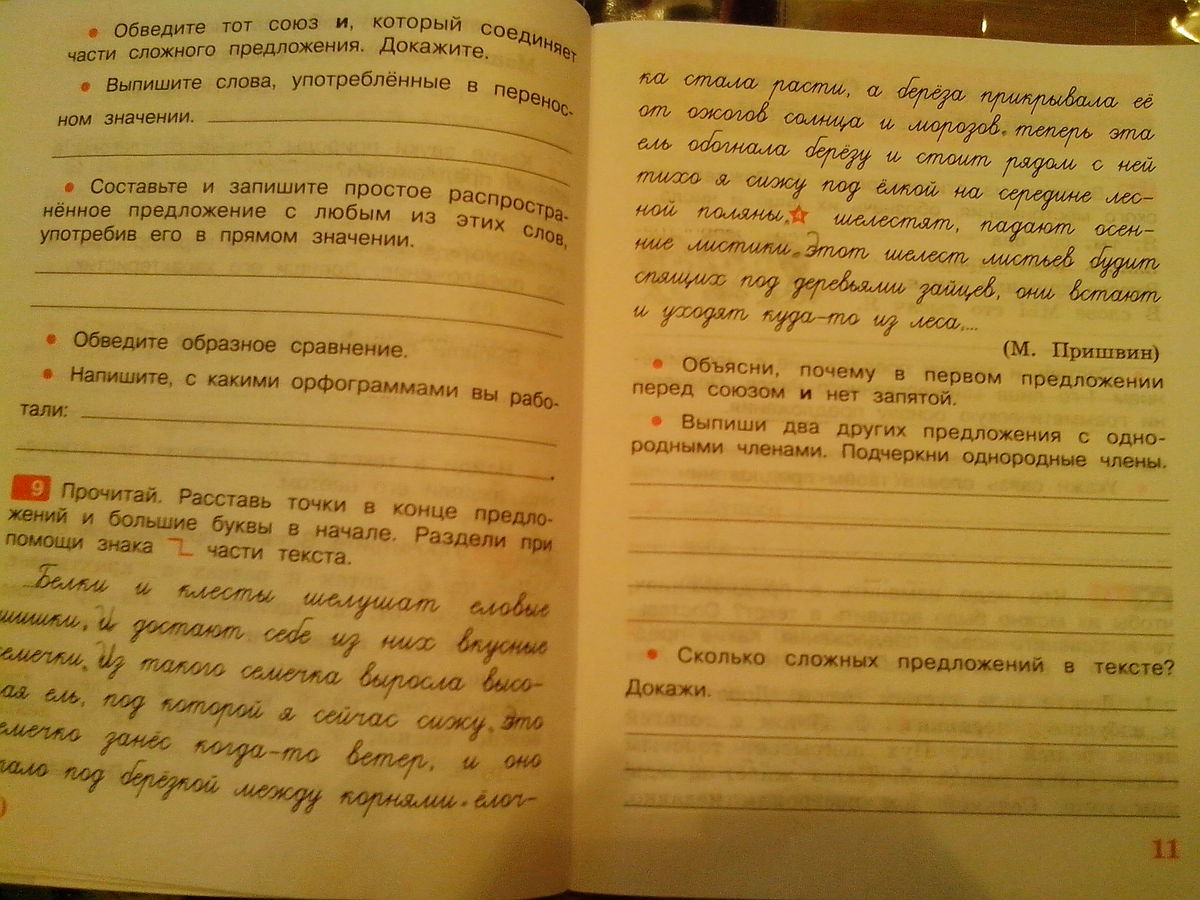 • Обведите тот союз и, который соединяет
части сложного предложения. Докажите.
• Выпишите слова, употреблённые в перенос-
ном значении.
• Составьте и запишите простое распростра-
нённое предложение с любым из этих слов,
употребив его в прямом значении.
• Обведите образное сравнение.
• Напишите, с какими орфограммами вы рабо-
тали:
9 Прочитай. Расставь точки в конце предло-
жений и большие буквы в начале. Раздели при
помощи знака части текста.
Белки и клесты шелушат еловые
шишки. И достают себе из них вкусные
семечки. Из такого семечка выросла высо-
ая ель, под которой я сейчас сижу. Это
емечко занёс когда-то ветер, и оно
пало под берёзкой между корнями. ёлоч-
ка стала расти, а берёза прикрывала её
от ожогов солнца и морозов. теперь эта
ель обогнала берёзу и стоит рядом с ней
тихо я сижу под ёлкой на середине лес-
ной поляны. шелестят, падают осен-
ние листики. Этот шелест листьев будит
спящих под деревьями зайцев, они встают
и уходят куда-то из леса....
(М. Пришвин)
• Объясни, почему в первом предложении
перед союзом и нет запятой.
• Выпиши два других предложения с одно-
родными членами. Подчеркни однородные члены.
• Сколько сложных предложений в тексте?
Докажи.
11